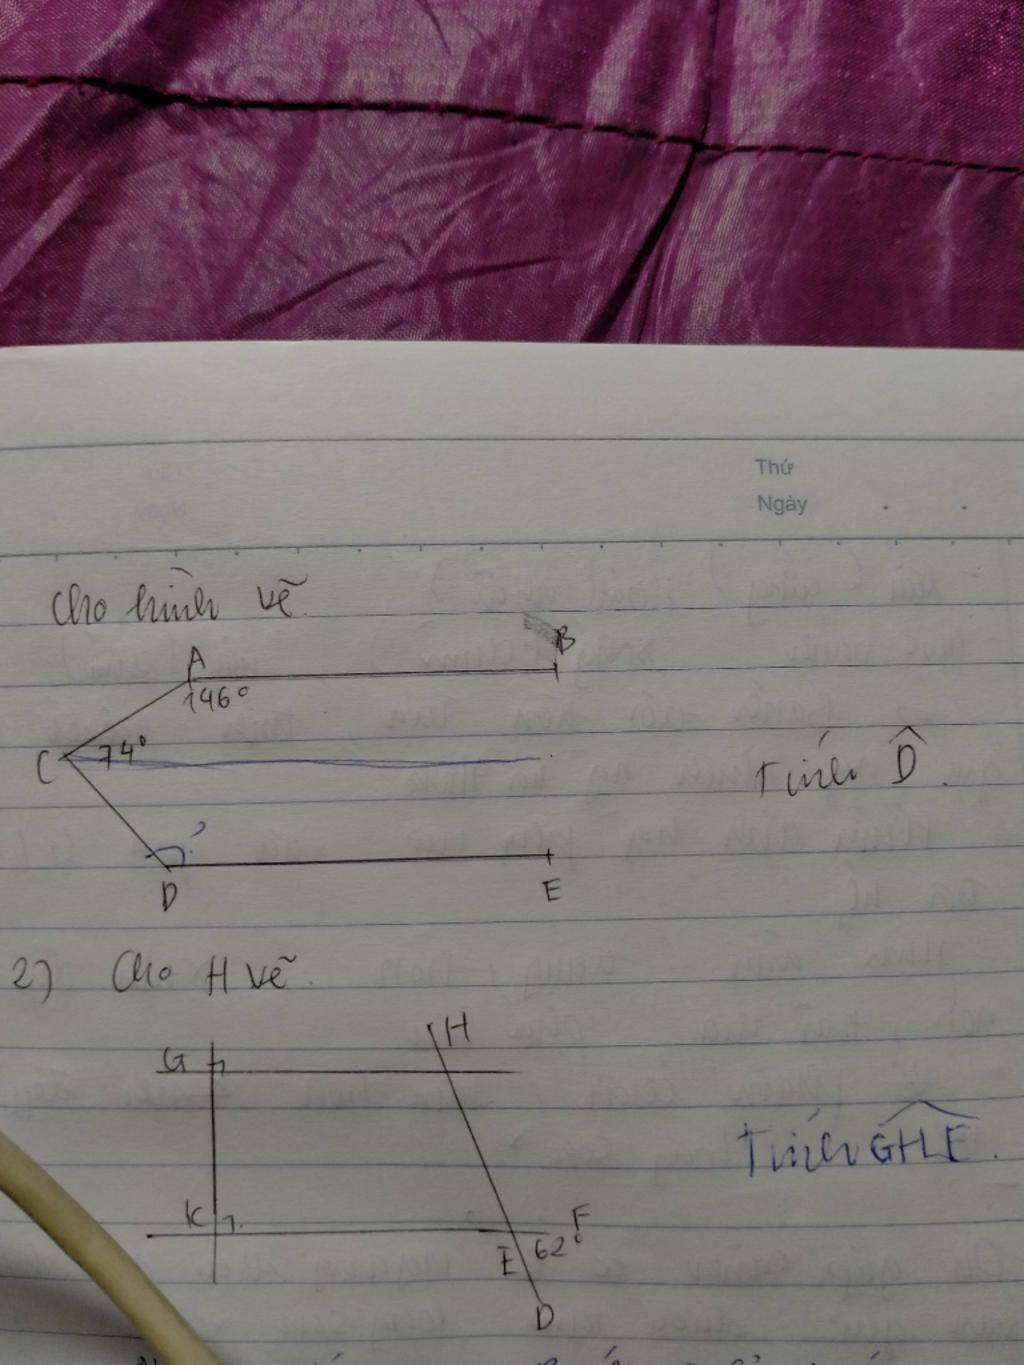 Thứ
Ngày
Cho hình vẽ
A
B
146°
C
74°
Tính D̂.
?
D
E
2) Cho H vẽ.
G
H
Tính GHE.
K
F
E
62°
D